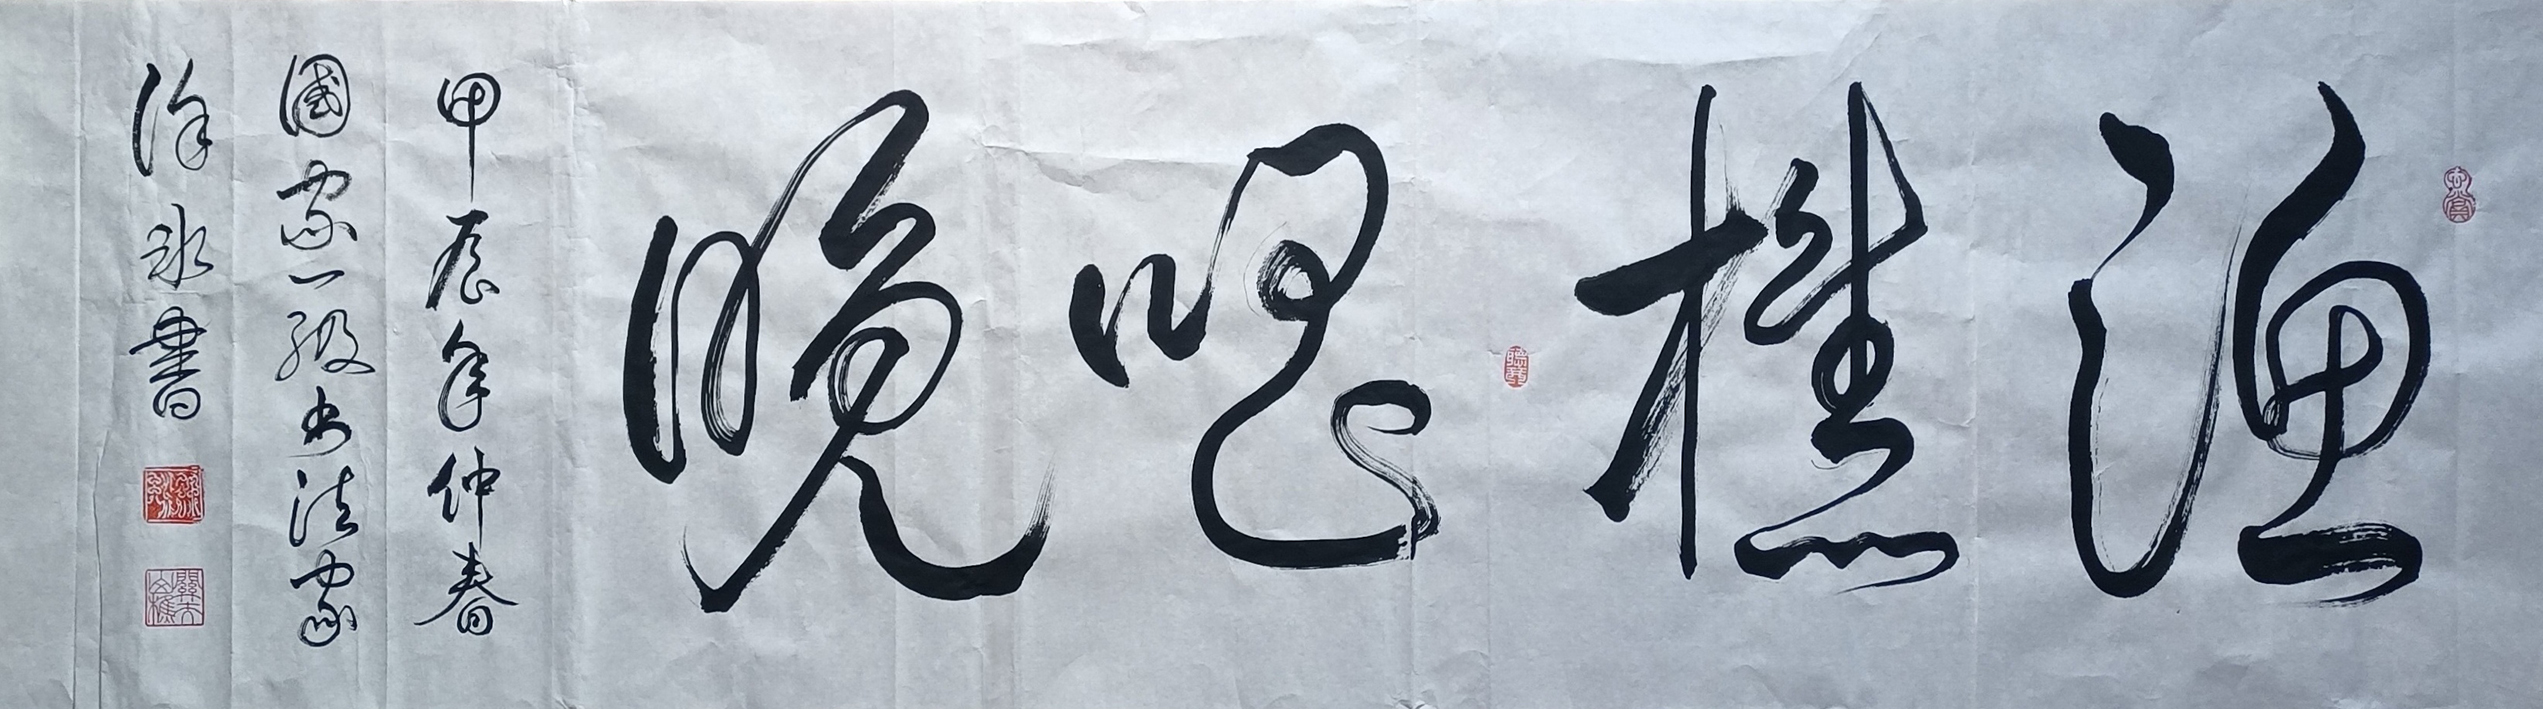 渔樵唱晚
甲辰年仲春
國家一级书法家
徐冰書